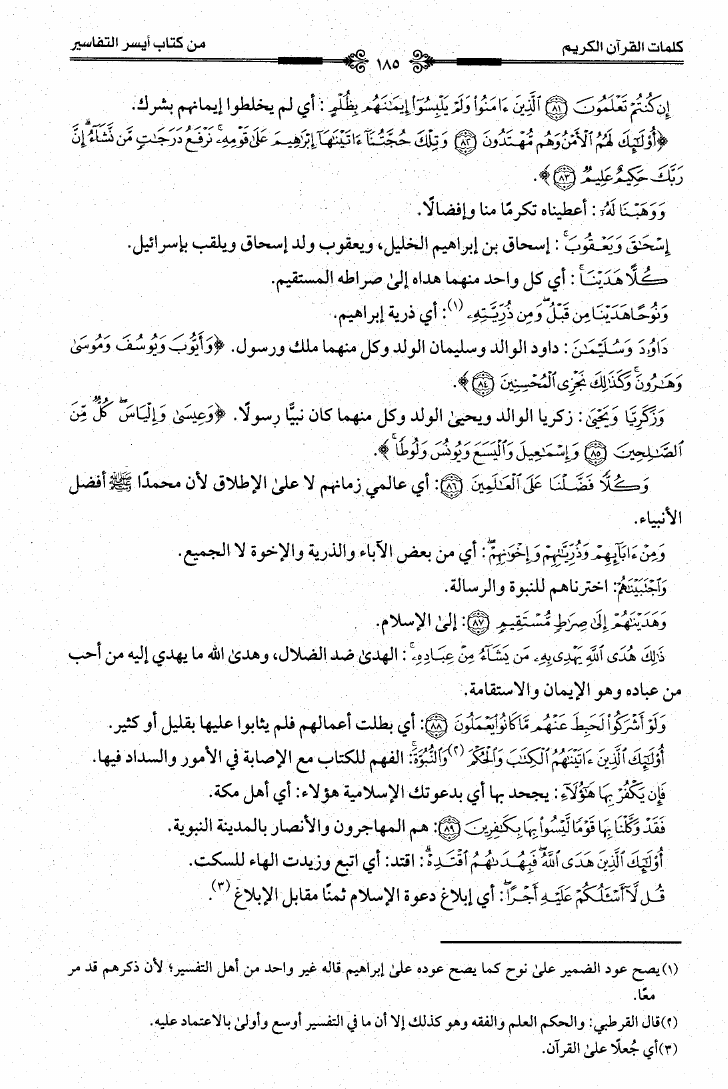 كلمات القرآن الكريم
١٨٥
من كتاب أيسر التفاسير
إِن كُنتُمْ تَعْلَمُونَ ٨١ الَّذِينَ ءَامَنُوا وَلَمْ يَلْبِسُوا إِيمَانَهُم بِظُلْمٍ : أي لم يخلطوا إيمانهم بشرك.
﴿أُولَٰئِكَ لَهُمُ الْأَمْنُ وَهُم مُّهْتَدُونَ ٨٢ وَتِلْكَ حُجَّتُنَا ءَاتَيْنَاهَا إِبْرَاهِيمَ عَلَىٰ قَوْمِهِ نَرْفَعُ دَرَجَاتٍ مَّن نَّشَاءُ إِنَّ
رَبَّكَ حَكِيمٌ عَلِيمٌ ٨٣﴾.
وَوَهَبْنَا لَهُ : أعطيناه تكرمًا منا وإفضالًا.
إِسْحَاقَ وَيَعْقُوبَ : إسحاق بن إبراهيم الخليل، ويعقوب ولد إسحاق ويلقب بإسرائيل.
كُلًّا هَدَيْنَا : أي كل واحد منهما هداه إلىٰ صراطه المستقيم.
وَنُوحًا هَدَيْنَا مِن قَبْلُ وَمِن ذُرِّيَّتِهِ (١): أي ذرية إبراهيم.
دَاوُدَ وَسُلَيْمَانَ : داود الوالد وسليمان الولد وكل منهما ملك ورسول. ﴿وَأَيُّوبَ وَيُوسُفَ وَمُوسَىٰ
وَهَارُونَ وَكَذَٰلِكَ نَجْزِي الْمُحْسِنِينَ ٨٤﴾.
وَزَكَرِيَّا وَيَحْيَىٰ : زكريا الوالد ويحيىٰ الولد وكل منهما كان نبيًّا رسولًا. ﴿وَعِيسَىٰ وَإِلْيَاسَ كُلٌّ مِّنَ
الصَّالِحِينَ ٨٥ وَإِسْمَاعِيلَ وَالْيَسَعَ وَيُونُسَ وَلُوطًا﴾.
وَكُلًّا فَضَّلْنَا عَلَى الْعَالَمِينَ ٨٦: أي عالمي زمانهم لا علىٰ الإطلاق لأن محمدًا ﷺ أفضل
الأنبياء.
وَمِنْ ءَابَائِهِمْ وَذُرِّيَّاتِهِمْ وَإِخْوَانِهِمْ : أي من بعض الآباء والذرية والإخوة لا الجميع.
وَاجْتَبَيْنَاهُمْ: اخترناهم للنبوة والرسالة.
وَهَدَيْنَاهُمْ إِلَىٰ صِرَاطٍ مُّسْتَقِيمٍ ٨٧: إلىٰ الإسلام.
ذَٰلِكَ هُدَى اللَّهِ يَهْدِي بِهِ مَن يَشَاءُ مِنْ عِبَادِهِ : الهدىٰ ضد الضلال، وهدىٰ الله ما يهدي إليه من أحب
من عباده وهو الإيمان والاستقامة.
وَلَوْ أَشْرَكُوا لَحَبِطَ عَنْهُم مَّا كَانُوا يَعْمَلُونَ ٨٨: أي بطلت أعمالهم فلم يثابوا عليها بقليل أو كثير.
أُولَٰئِكَ الَّذِينَ ءَاتَيْنَاهُمُ الْكِتَابَ وَالْحُكْمَ (٢) وَالنُّبُوَّةَ: الفهم للكتاب مع الإصابة في الأمور والسداد فيها.
فَإِن يَكْفُرْ بِهَا هَٰؤُلَاءِ : يجحد بها أي بدعوتك الإسلامية هؤلاء: أي أهل مكة.
فَقَدْ وَكَّلْنَا بِهَا قَوْمًا لَّيْسُوا بِهَا بِكَافِرِينَ ٨٩: هم المهاجرون والأنصار بالمدينة النبوية.
أُولَٰئِكَ الَّذِينَ هَدَى اللَّهُ فَبِهُدَاهُمُ اقْتَدِهْ : اقتد: أي اتبع وزيدت الهاء للسكت.
قُل لَّا أَسْأَلُكُمْ عَلَيْهِ أَجْرًا : أي إبلاغ دعوة الإسلام ثمنًا مقابل الإبلاغ (٣).
(١) يصح عود الضمير علىٰ نوح كما يصح عوده علىٰ إبراهيم قاله غير واحد من أهل التفسير؛ لأن ذكرهم قد مر
معًا.
(٢) قال القرطبي: والحكم العلم والفقه وهو كذلك إلا أن ما في التفسير أوسع وأولىٰ بالاعتماد عليه.
(٣) أي جُعلًا علىٰ القرآن.